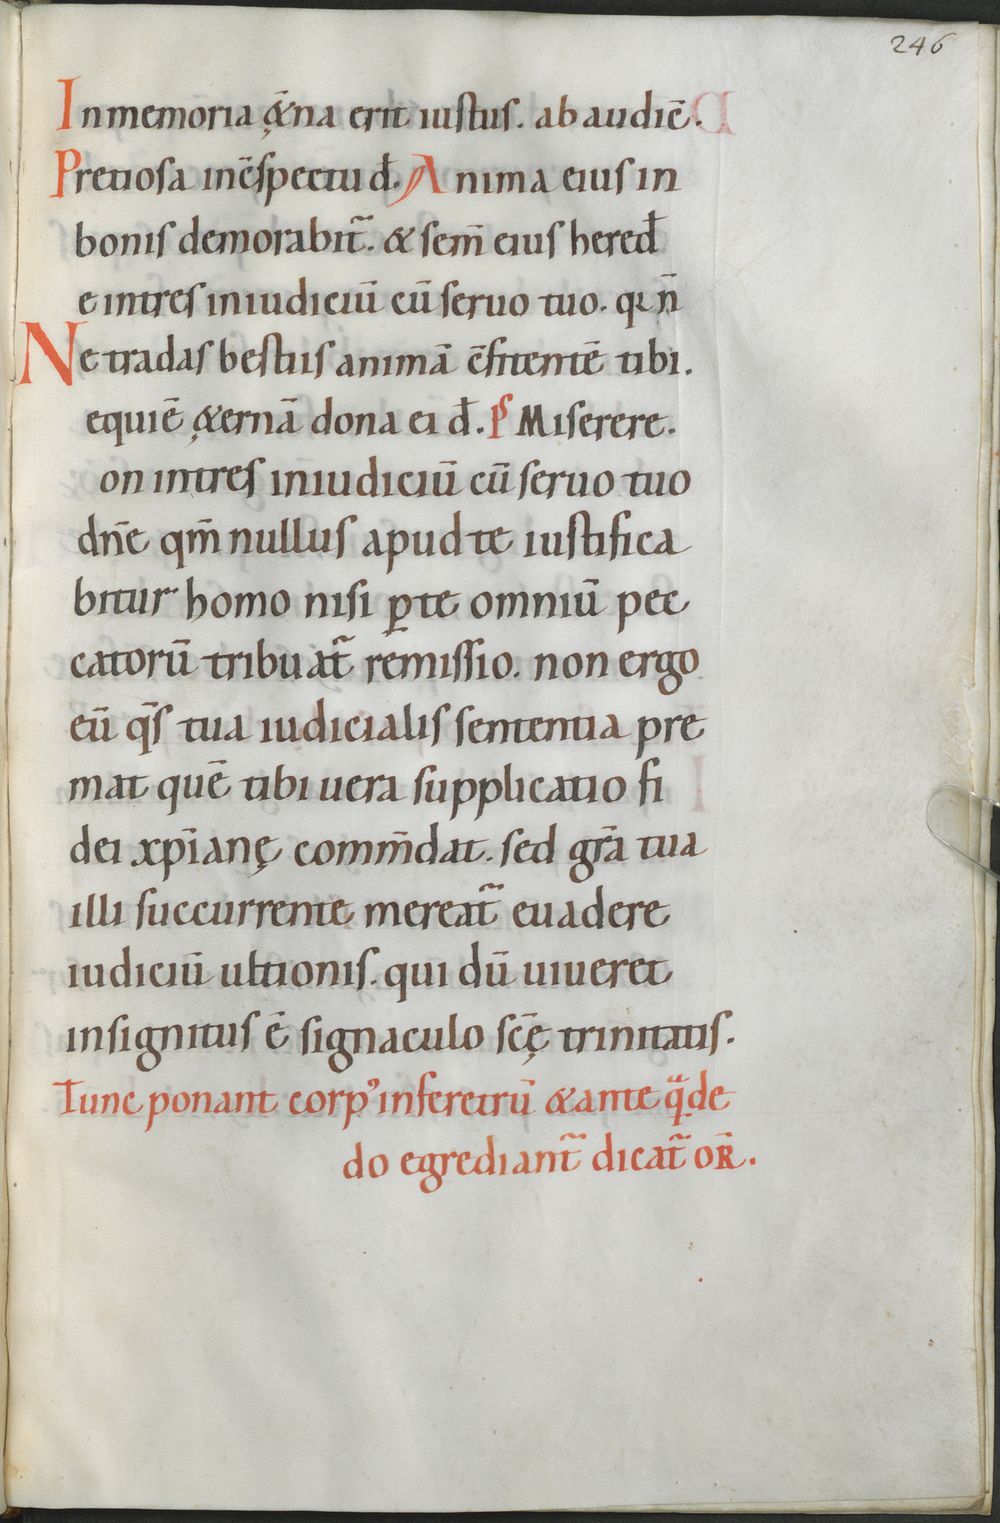 246
In memoria ę&̄na erit iustus. ab audiē.
Pretiosa in c̄spectu đ. Anima eius in
bonis demorabit̃. & sem̄ eius hered̄
e intres in iudiciū cū seruo tuo. qr n̄
Ne tradas bestiis animā c̄fitentē tibi.
equiē ę&ernā dona ei đ. P̄s Miserere.
on intres in iudiciū cū seruo tuo
dn̄e qm̄ nullus apud te iustifica
bitur homo nisi ꝑ te omniū pec
catorū tribuat̃ remissio. non ergo
eū q̄s tua iudicialis sententia pre
mat quē tibi uera supplicatio fi
dei xp̄ianę comm̄dat. sed gr̄a tua
illi succurrente mereat̃ euadere
iudiciū ultionis. qui dū uiueret
insignitus ē signaculo sc̄ę trinitatis.
Tunc ponant corp' in feretrū & anteq̃ de
do egrediant̃ dicat̃ oR̄.